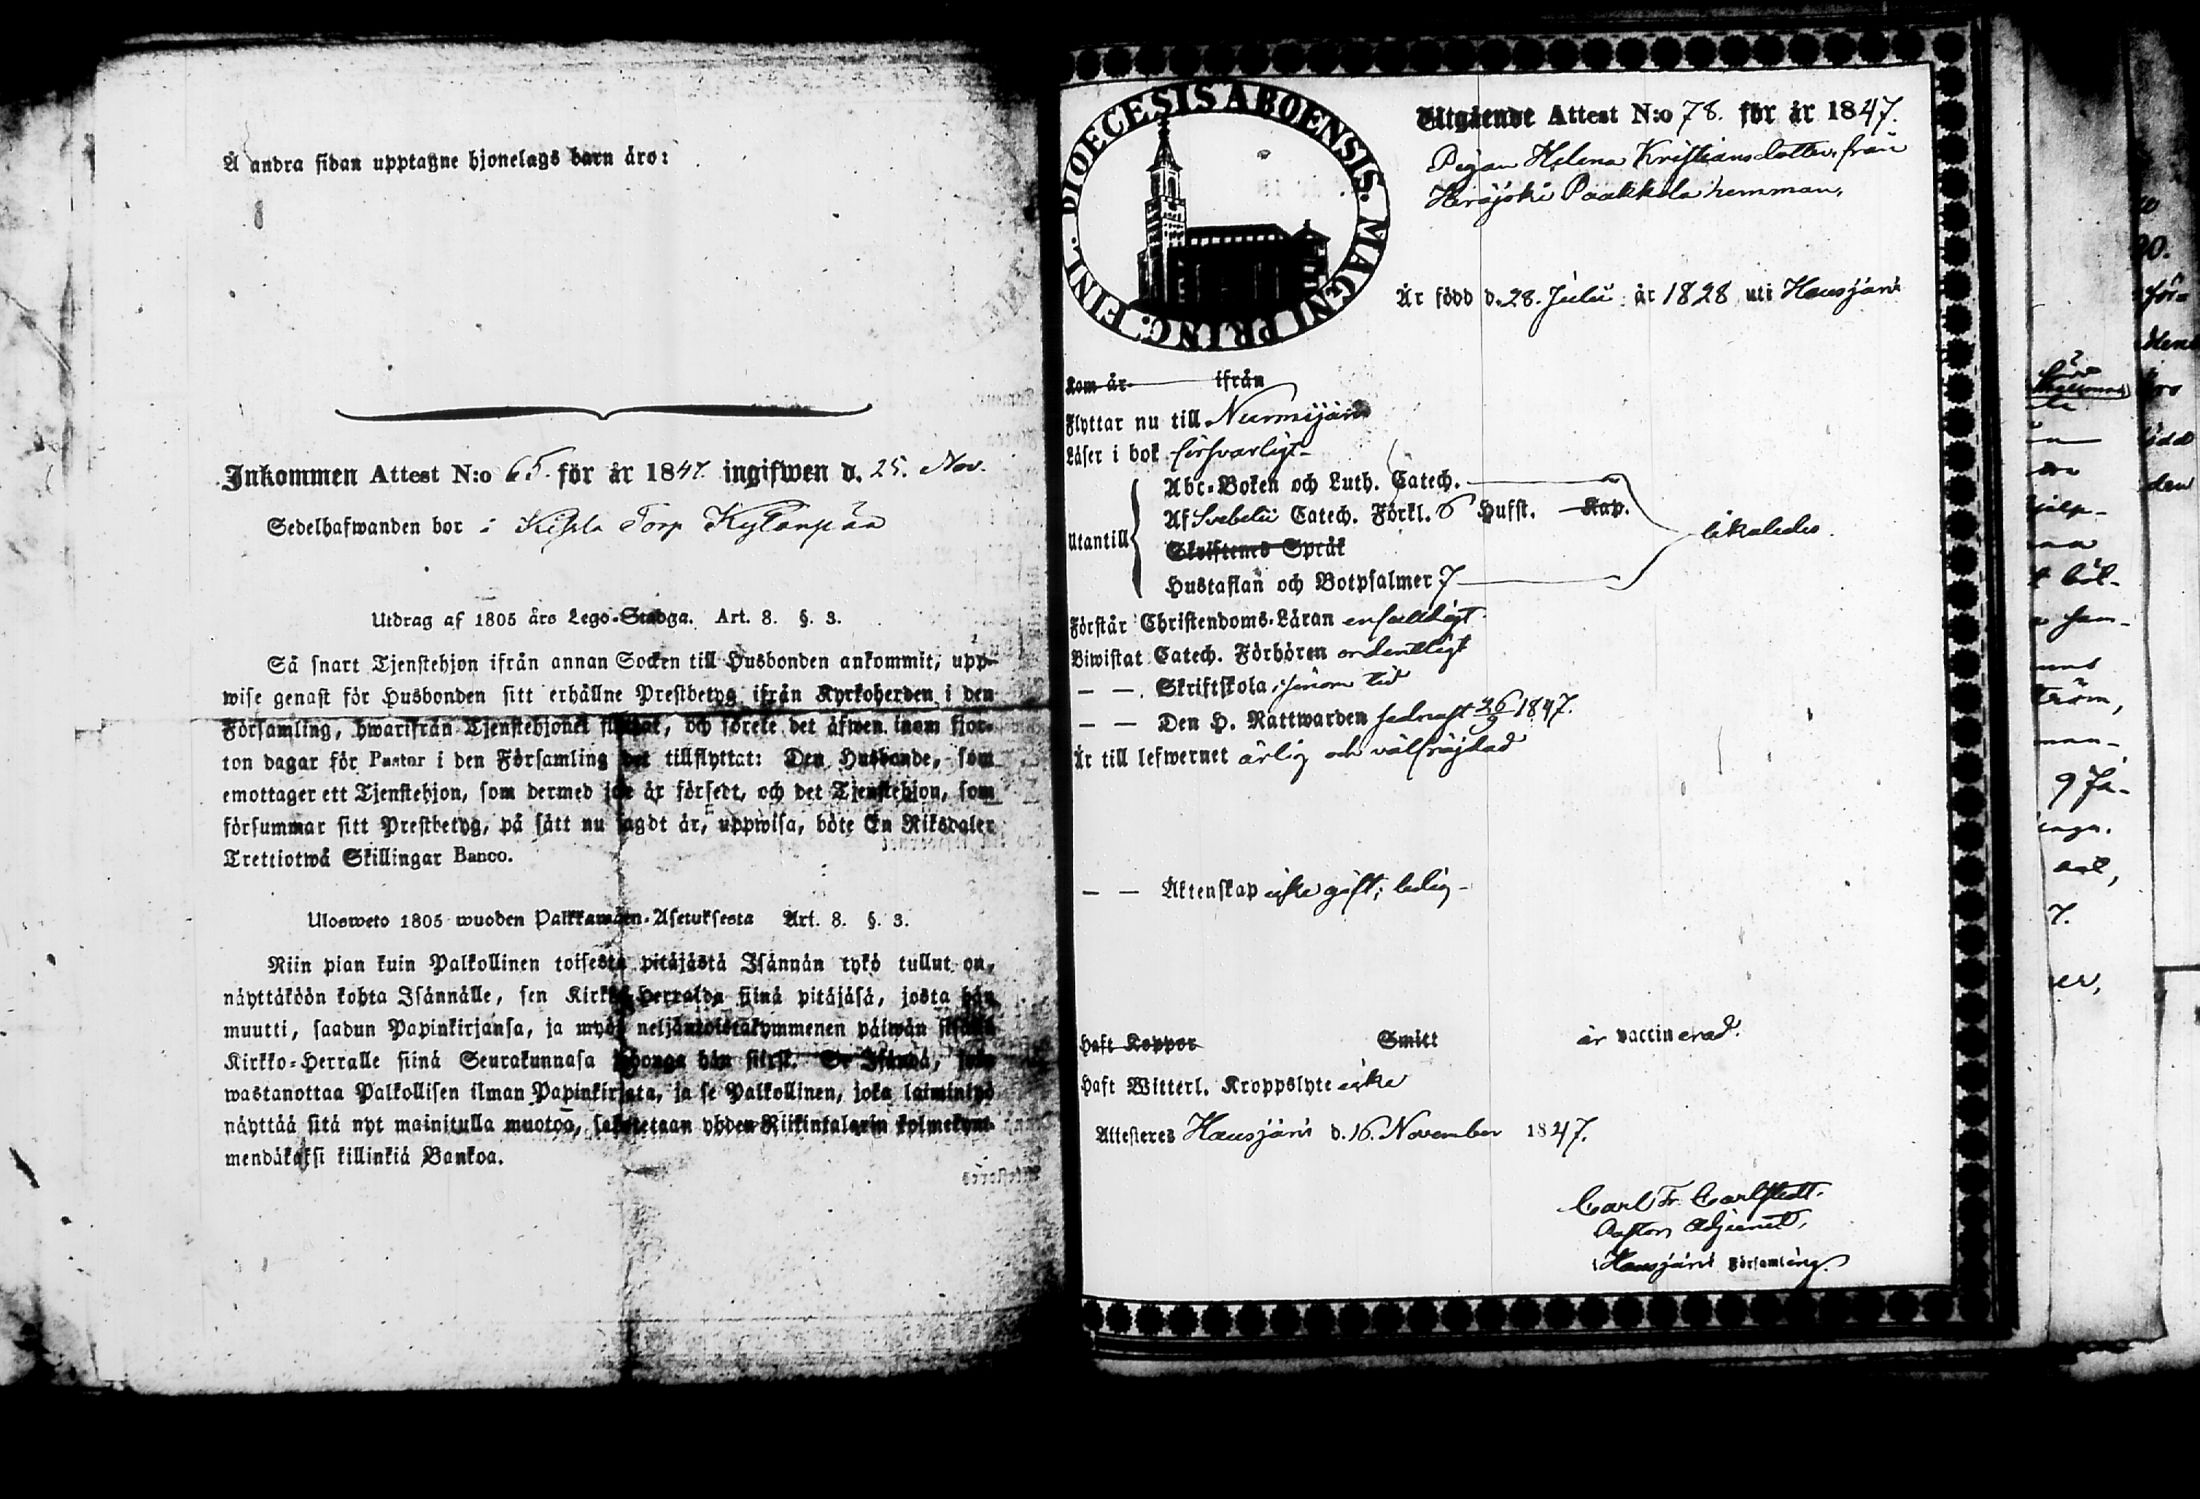 Å andra sidan upptagne hjonelags barn äro:
Inkommen Attest N:o 65. för år 1847. ingifwen d. 25. Nov.
Sedelhafwanden bor i Torp
Utdrag af 1805 års Lego-Stadga. Art. 8. §. 3.
Så snart Tjenstehjon ifrån annan Socken till Husbonden ankommit, upp-
wise genast för Husbonden sitt erhållne Prestbetyg ifrån Kyrkoherden i den
Församling, hwarifrån Tjenstehjonet flyttat, och förete det äfwen inom fjor-
ton dagar för Pastor i den Församling det tillflyttat: Den Husbonde, som
emottager ett Tjenstehjon, som dermed icke är försedt, och det Tjenstehjon, som
försummar sitt Prestbetyg, på sätt nu sagdt är, uppwisa, böte En Riksdaler
Trettiotwå Skillingar Banco.
Ulosweto 1805 wuoden Palkkawäen-Asetuksesta Art. 8. §. 3.
Niin pian kuin Palkollinen toisesta pitäjästä Isännän tykö tullut on,
näyttäköön kohta Isännälle, sen Kirkko-Herralda siinä pitäjäsä, josta hän
muutti, saadun Papinkirjansa, ja myös neljäntoistakymmenen päiwän sisällä
Kirkko-Herralle siinä Seurakunnasa hän siirsi. Se Isändä, joka
wastanottaa Palkollisen ilman Papinkirjata, ja se Palkollinen, joka laiminlyö
näyttää sitä nyt mainitulla muotoa, sakotetaan yhden Riikintalarin kolmekym-
mendäkaksi killinkiä Bankoa.
DIOECESIS ABOENSIS. MAGNI PRINC. FINL.
Utgående Attest N:o 78. för år 1847.
Pigan Helena Kristiansdotter från
Herajoki Paakkola hemman,
Är född d. 28. Julii år 1828 uti Hausjärvi
kom år ifrån
Flyttar nu till Nurmijärvi
Läser i bok försvarligt
Utantill
Abc-Boken och Luth. Catech.
Af Svebelii Catech. Förkl. 6 Hufst. Kap.
Skriftenes Språk
Hustaflan och Botpsalmer 7
likaledes.
Förstår Christendoms-Läran enfaldigt
Biwistat Catech. Förhören ordentligt
— — Skriftskola i sinom tid
— — Den H. Nattwarden sednast 26/9 1847.
Är till lefwernet ärlig och välfräjdad
— — Äktenskap icke gift; ledig
Haft Koppor Smitt är vaccinerad.
Haft Witterl. Kroppslyte icke
Attesteres Hausjärvi d. 16. November 1847.
Carl Fr. Carlstedt.
Pastors Adjunct,
i Hausjärvi Församling.